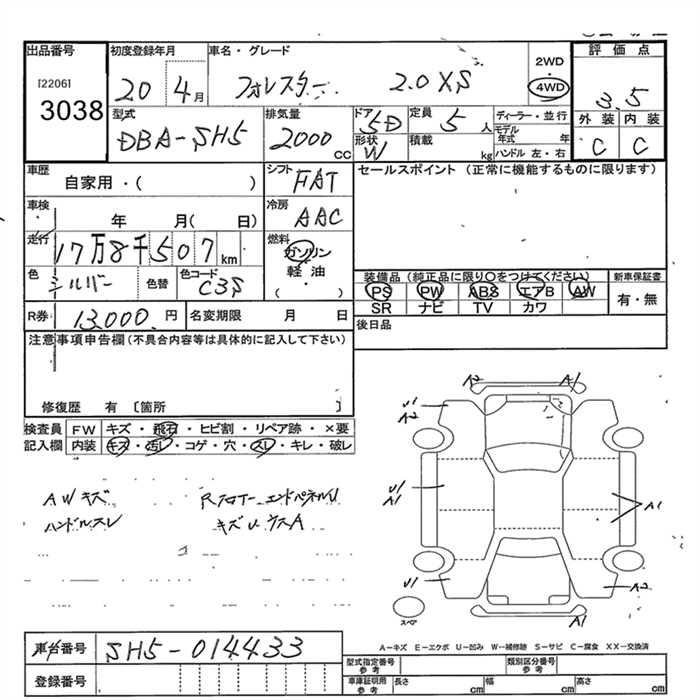 出品番号 初度登録年月 車名・グレード 2WD・ 評価点
[2206] 3038 20 4月 フォレスター 2.0 XS 4WD 3.5
型式 排気量 ドア 定員 ディーラー・並行 外装 内装
DBA-SH5 2000cc 5D 5人 モデル年式 年 C C
形状 W 積載 kg ハンドル 左・右
車歴 シフト セールスポイント (正常に機能するものに限ります)
自家用・( ) FAT
車検 冷房
年 月( 日) AAC
走行 燃料
17万8千507km ガソリン
色 シルバー 色替 色コード C3S 軽油 ( ・ )
装備品(純正品に限り○をつけてください) 新車保証書
PS PW ABS エアB AW 有・無
SR ナビ TV カワ
R券 13,000.円 名変期限 月 日
後日品
注意事項申告欄(不具合内容等は具体的に記入して下さい)
修復歴 有 〔箇所 〕
検査員 FW キズ・飛石・ヒビ割・リペア跡・×要
記入欄 内装 キズ・汚レ・コゲ・穴・スレ・キレ・破レ
AWキズ
ハンドルスレ
キズU
A2 A1
U1
A2
U1
A1
A1
U1 A2
A1
スペア
A-キズ E-エクボ U-凹み W-補修跡 S-サビ C-腐食 XX-交換済
車台番号 SH5-014433
登録番号
型式指定番号 参考 類別区分番号 参考
車庫証明用 参考 長さ cm 幅 cm 高さ cm